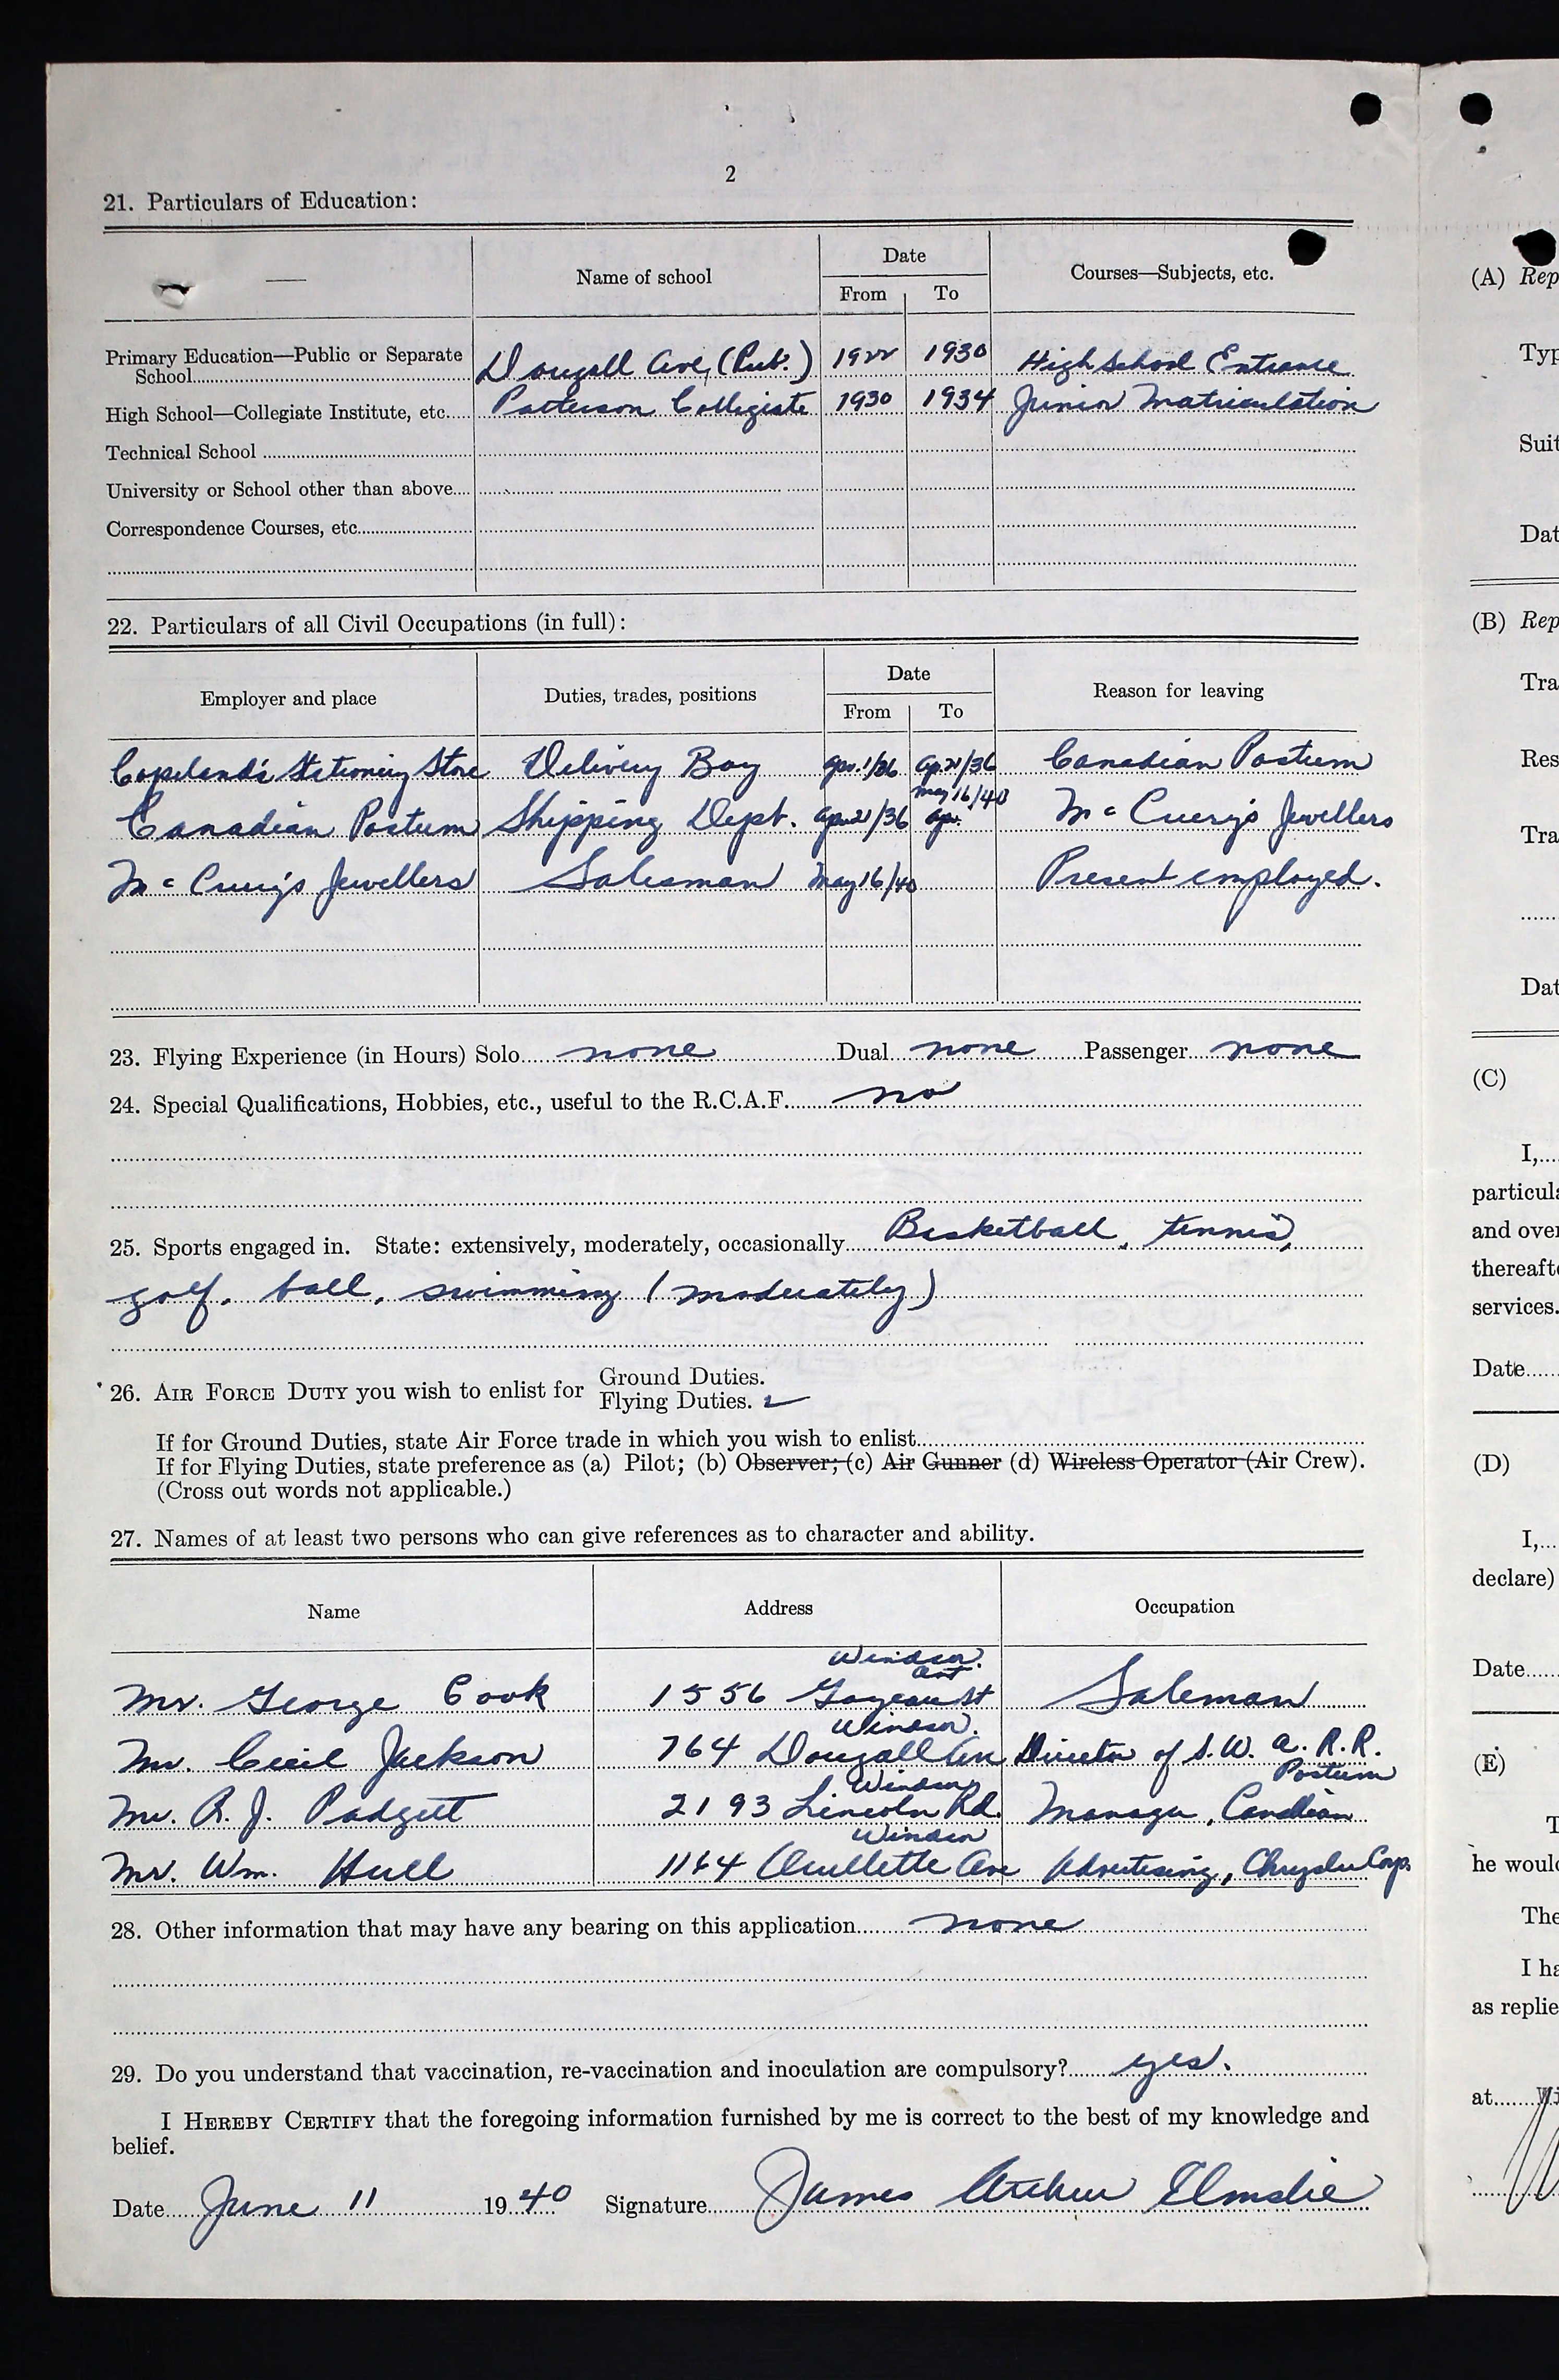 2
21. Particulars of Education:
— Name of school Date Courses—Subjects, etc.
From To
Primary Education—Public or Separate
School Dougall Ave, (Pub.) 1922 1930 High School Entrance
High School—Collegiate Institute, etc. Patterson Collegiate 1930 1934 Junior Matriculation
Technical School
University or School other than above
Correspondence Courses, etc.
22. Particulars of all Civil Occupations (in full):
Employer and place Duties, trades, positions Date Reason for leaving
From To
Copeland's Stationery Store Delivery Boy Apr. 1/36 Ap. 21/36 Canadian Postum
May 16/40
Canadian Postum Shipping Dept. Apr. 21/36 Ap. McCreery's Jewellers
Mc Jewellers Salesman May 16/40 Present employed.
23. Flying Experience (in Hours) Solo none Dual none Passenger none
24. Special Qualifications, Hobbies, etc., useful to the R.C.A.F. no
25. Sports engaged in. State: extensively, moderately, occasionally Basketball, tennis,
golf, ball, swimming (moderately)
26. AIR FORCE DUTY you wish to enlist for Ground Duties.
Flying Duties. ✓
If for Ground Duties, state Air Force trade in which you wish to enlist
If for Flying Duties, state preference as (a) Pilot; (b) Observer; (c) Air Gunner (d) Wireless Operator (Air Crew).
(Cross out words not applicable.)
27. Names of at least two persons who can give references as to character and ability.
Name Address Occupation
Windsor.
Ont
Mr. George Cook 1556 Goyeau St Saleman
Windsor.
Mr. Cecil Jackson 764 Dougall Ave Director of S. W. & A. R. R.
Windsor Postum
Mr. R. J. Padgett 2193 Lincoln Rd. Manager, Canadian
Windsor
Mr. Wm. Hull 1164 Ouellette Ave Advertising, Chrysler Corp.
28. Other information that may have any bearing on this application none
29. Do you understand that vaccination, re-vaccination and inoculation are compulsory? yes.
I HEREBY CERTIFY that the foregoing information furnished by me is correct to the best of my knowledge and
belief.
Date June 11 1940 Signature James Arthur Elmslie
(A) Rep
Typ
Suit
Dat
(B) Rep
Tra
Res
Tra
Dat
(C)
I,
particula
and over
thereafte
services.
Date
(D)
I,
declare)
Date
(E)
T
he would
The
I ha
as replie
at Wi